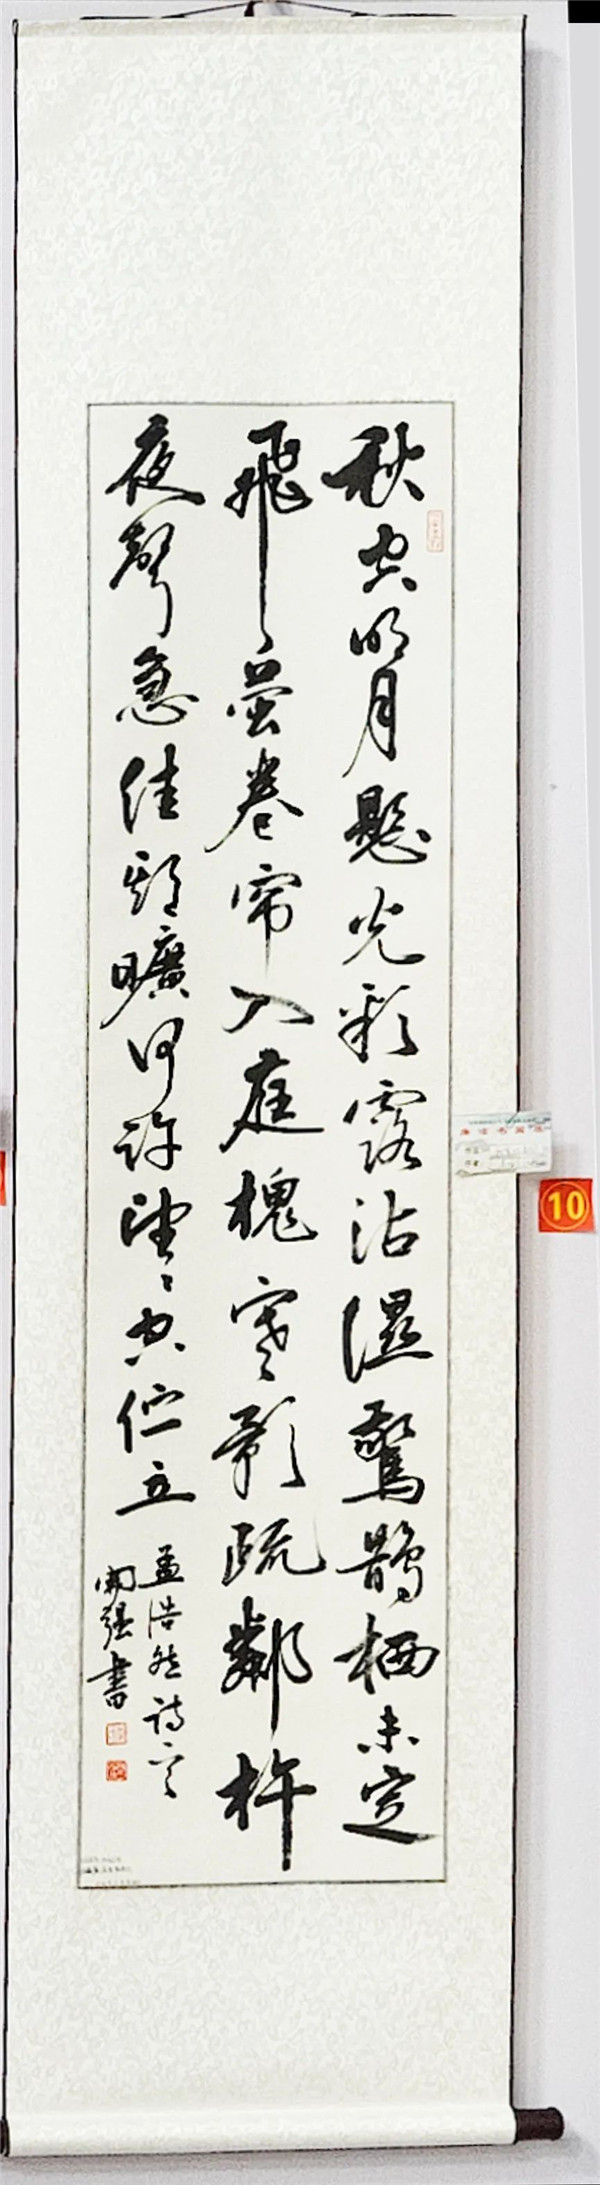 秋空明月懸光彩露沾濕驚鵲栖未定
飛萤卷帘入庭槐寒影疏鄰杵
夜聲急佳期曠何许望々空伫立
孟浩然诗
開强書
10